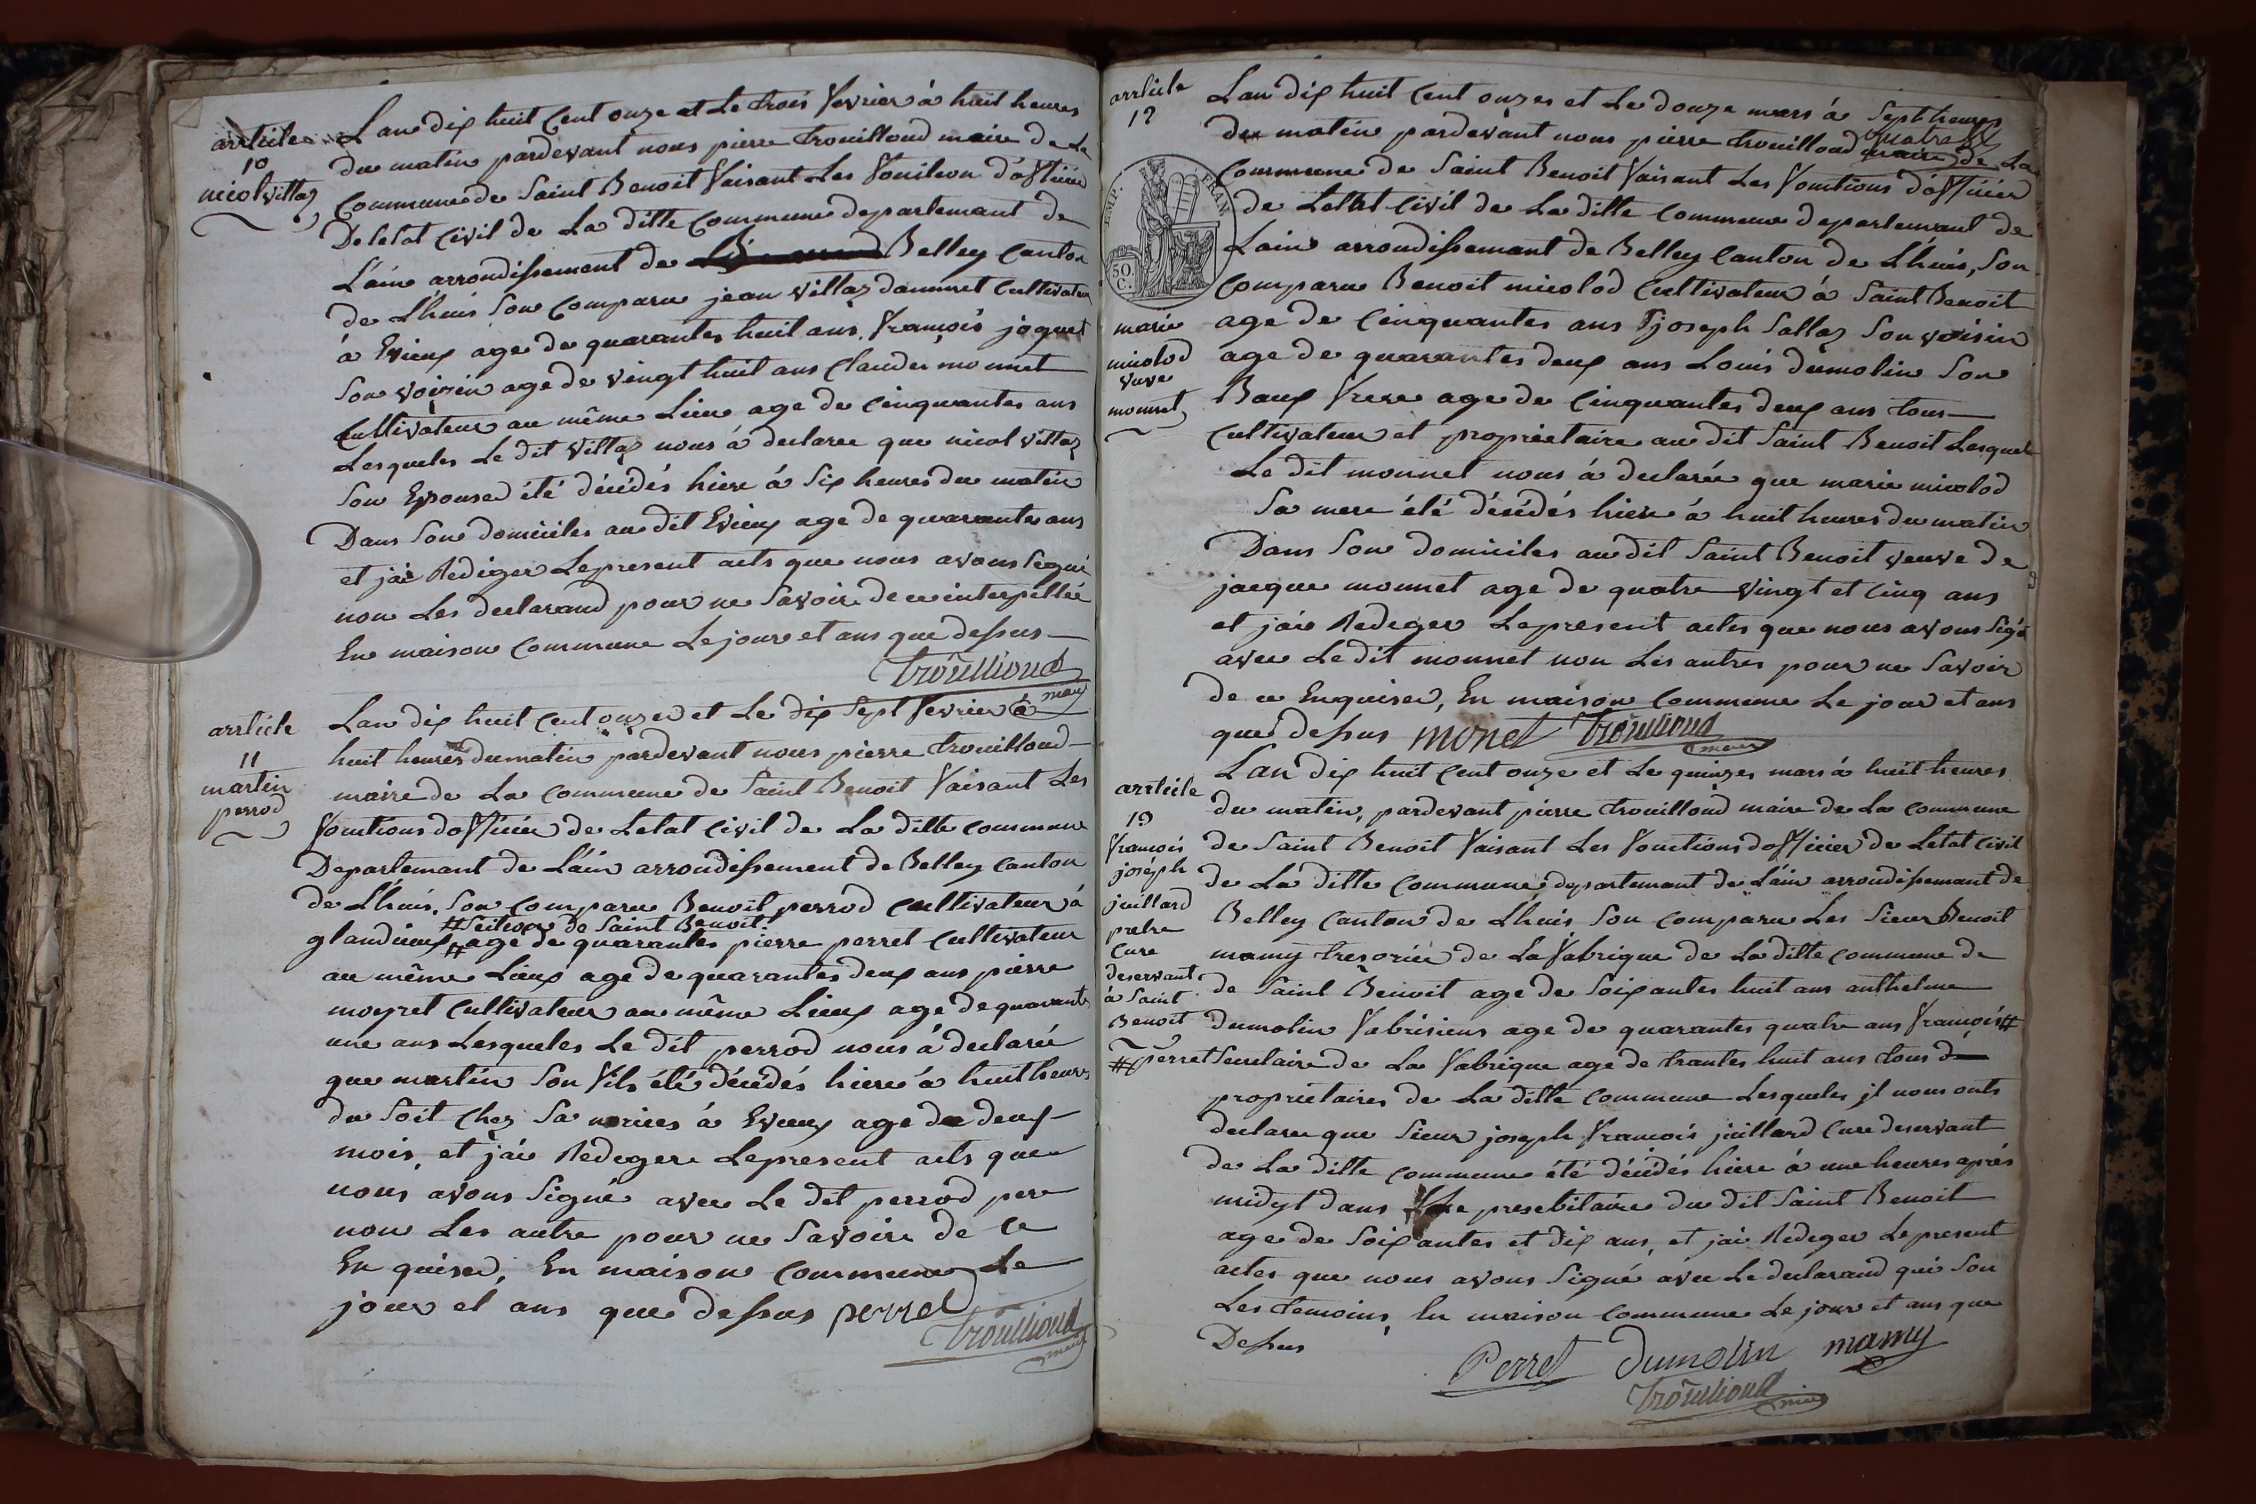 article
10
nicol villaz
Lan dix huit Cent onze et Le trois fevrier à huit heures
du matin pardevant nous pierre trouilloud maire de La
Commune de Saint Benoit faisant Les fonction d'officier
De letat Civil de La ditte Commune departemant de
L'ain arrondissement de Belley Canton
de Lhuis Son Comparu jean villaz dammet Cultivateur
à Evieux age de quarantes huit ans, françois joguet
Son voizin age de vingt huit ans Claude monnet
Cultivateur au même Lieu age de Cinquantes ans
Lesqueles Le dit villaz nous à declaree que nicol villaz
Son Epouse été décédés hiere à Six heures du matin
Dans Son domiciles au dit Evieux age de quarantes ans
et jai Rediger Lepresent acts que nous avons Signé
non Les declarand pour ne Savoir de ce interpellée
En maison Commune Lejour et ans que dessus
trouilloud
maire
article
11
martin
perrod
Lan dix huit Cent onze et Le dix Sept fevrier à
huit heures dumatin pardevant nous pierre trouilloud
maire de La Commune de Saint Benoit faisant Les
fonctions dofficier de Letat Civil de La ditte commune
Departemant de L'ain arrondissement de Belley Canton
de Lhuis, Son Comparu Benoit perrod Cultivateur à
# Section de Saint Benoit.
glandieux # age de quarantes pierre perret Cultivateur
au même Lieux age de quarantes deux ans pierre
moyret Cultivateur au même Lieux age de quarante
une ans Lesqueles Le dit perrod nous à declarée
que martin Son fils été décédés hiere à huit heures
du Soit Chez Sa norices à Evieux age de deux
mois, et jai Redegere Lepresent acts que
nous avons Signé avec Le dit perrod pere
non Les autre pour ne Savoire de ce
En quised, En maison Commune Le
jour et ans que dessus perrod
trouilloud
maire
article
12
IMP. FRAN
50.
C.
marie
micolod
veuve
monnet
Lan dix huit Cent onzes et Le douze mars à Sept heures
du matin pardevant nous pierre trouilloud maire de La
Commune de Saint Benoit faisant Les fonctions d'officier
de Letat Civil de La ditte Commune departemant de
Lain arrondissemant de Belley Canton de Lhuis, Son
Comparu Benoit micolod Cultivateur à Saint Benoit
age de Cinquantes ans joseph Sallaz Son voisin
age de quarantes deux ans Louis dumolin Son
Baux frere age de Cinquantes deux ans tous
Cultivateur et propriétaire au dit Saint Benoit Lesquels
Le dit monnet nous à declarée que marie micolod
Sa mere été décédés hiere à huit heures du matin
Dans Son domiciles au dit Saint Benoit veuve de
jacque monnet age de quatre vingt et Cinq ans
et jai Redeger Lepresent actes que nous avons Signé
avec Le dit monnet non Les autres pour ne Savoir
de ce Enquiser, En maison Commune Le jour et ans
que dessus monet trouilloud
maire
article
13
françois
joséph
juillard
pretre
Cure
deservant
à Saint
Benoit
# perret
Lan dix huit Cent onze et Le quinzes mars à huit heures
du matin, pardevant pierre trouilloud maire de La Commune
de Saint Benoit faisant Les fonctions dofficier de Letat Civil
de La ditte Commune, departemant de L'ain arrondissemant de
Belley Canton de Lhuis Son Comparu Les Sieur Benoit
mamy tresorier de La fabrique de La ditte commune de
de Saint Benoit age de Soixantes huit ans anthelme
dumolin fabrisiens age de quarantes quatre ans françois #
Secretaire de La fabrique age de trantes huit ans tous d
propriétaires de La ditte Commune Lesqueles jl nous onts
declare que Sieur joseph françois juillard Cure deservant
de La ditte commune été décédés hiere à une heures après
midyt dans Le presebitaire du dit Saint Benoit
age de Soixantes et dix ans, et jai Redeger Lepresent
actes que nous avons Signé avec Le declarand qui Son
Les temoins, En maison Commune Le jour et ans que
Dessus
Perret dumolin mamy
trouilloud
maire